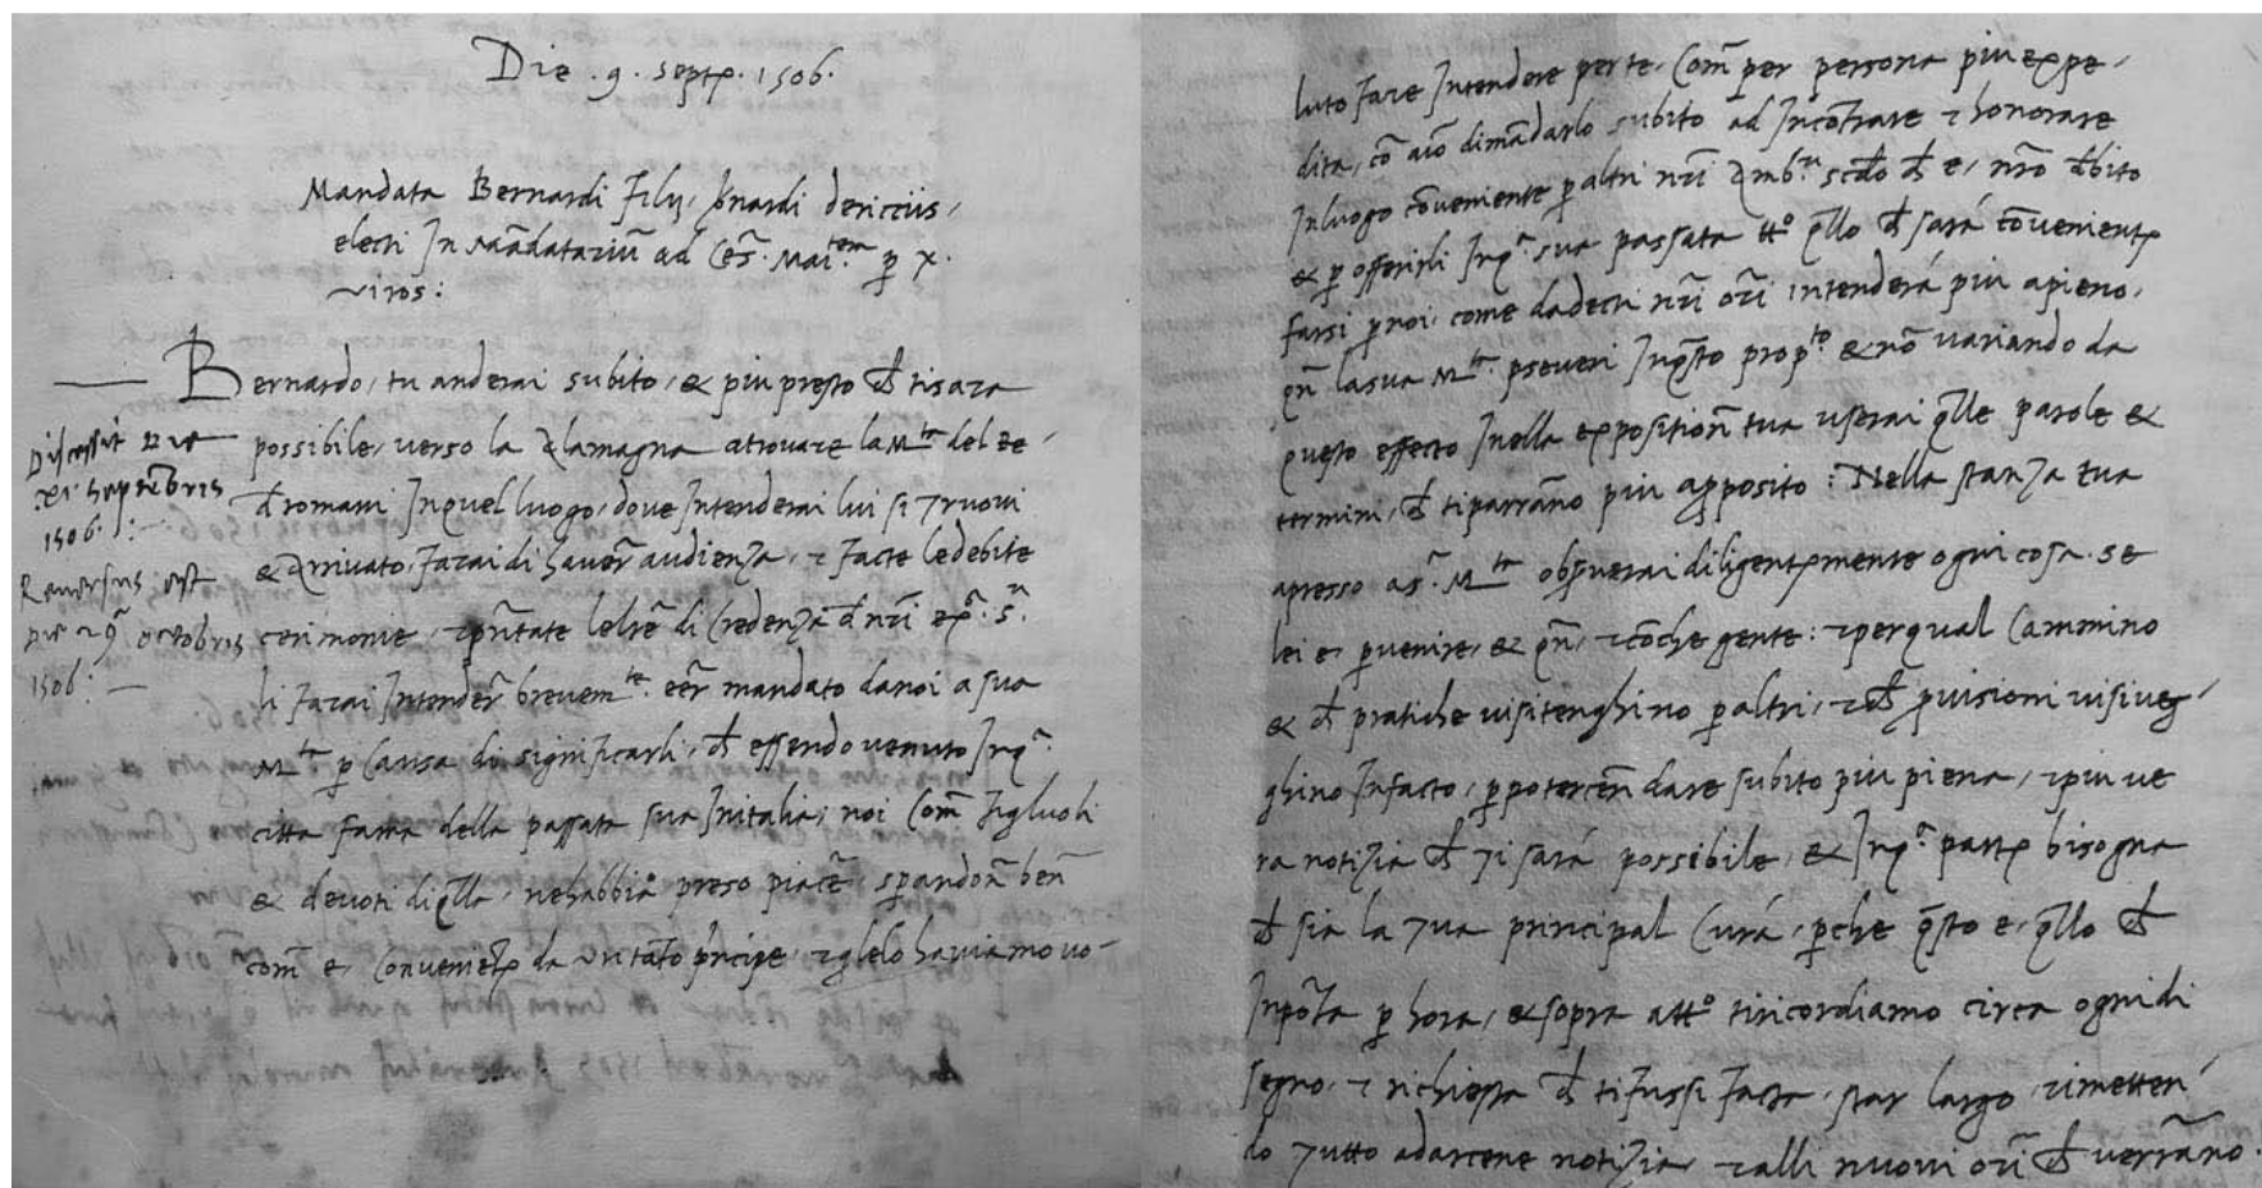 Die .9. septẽ. 1506.
Mandata Bernardi Filij, bnardi dericciis,
electi In Mãdatariũ ad Ces. Mai.tem p X.
viros:
Bernardo, tu anderai subito, & piu presto ch tisara
possibile, verso la Alamagna atrovare la Mta del Re
d romani Inquel luogo, dove Intenderai lui si truovi
& Arrivato, farai di haver audienza, & facte ledebite
cerimonie, & pntate le lre di Credenza d nri exci. Sri
li farai Intender brevemte. eer mandato danoi a sua
Mta p causa di significarli, ch essendo venuto Inqa
citta fama della passata sua Initalia, noi Com figluoli
& devoti diqlla, nehabbiã preso piacẽ sperandoñ beñ
com e, Convenietẽ da un tãto prĩcipe & glelo haviamo vo-
Discessit die
XI septẽbris
1506:
Reversus est
die 29 octobris
1506:
luto fare Intendere per te, Com per persona piu expe-
dita, cõ aĩo dimãdarlo subito ad Incõtrare & honorare
Inluogo cõveniente p altri nri Ambri scdo ch e, nro debito
& p offerirli Inqa. sua passata tto qllo ch sara cõveniente
farsi p noi, come dadecti nri ori intendera piu apieno,
qñ lasua Mta. pseveri Inqsto propto. & nõ variando da
questo effecto Inella expositioñ tua userai qlle parole &
termini, ch tiparrãno piu apposito: Nella stanza tua
apresso as. Mta observerai diligentemente ogni cosa. se
lei e, p venire, & qñ, & cõ che gente: & per qual Cammino
& ch pratiche visitenghino p altri, & ch pvisioni visiveg-
ghino Infacto, p poterceñ dare subito piu piena, & piu ve
ra notizia ch ti sará possibile, & Inqa parte bisogna
ch sia la tua principal Cura, p che qsto e, qllo ch
Inpõta p hora, & sopra atto tiricordiamo circa ognidi
segno, & richiesta ch tifussi facta, star largo, rimetten-
do tutto adarcene notizia, & alli nuovi ori ch verrãno.